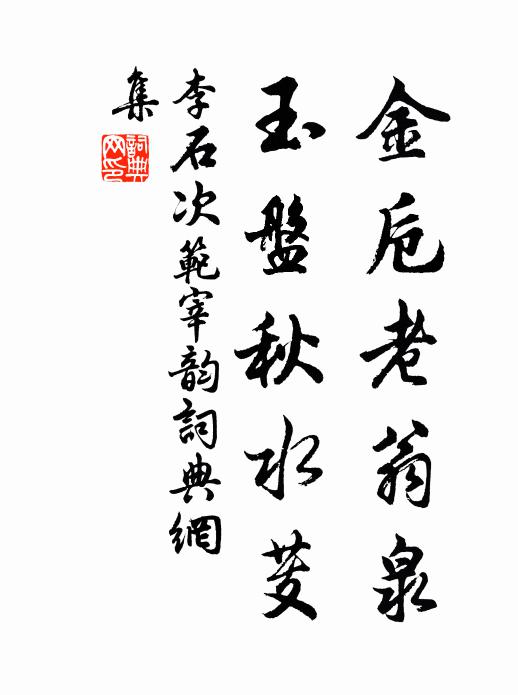 金卮老翁泉
玉盤秋水芡
李石次範宰韵詞典網
集
詞典網印